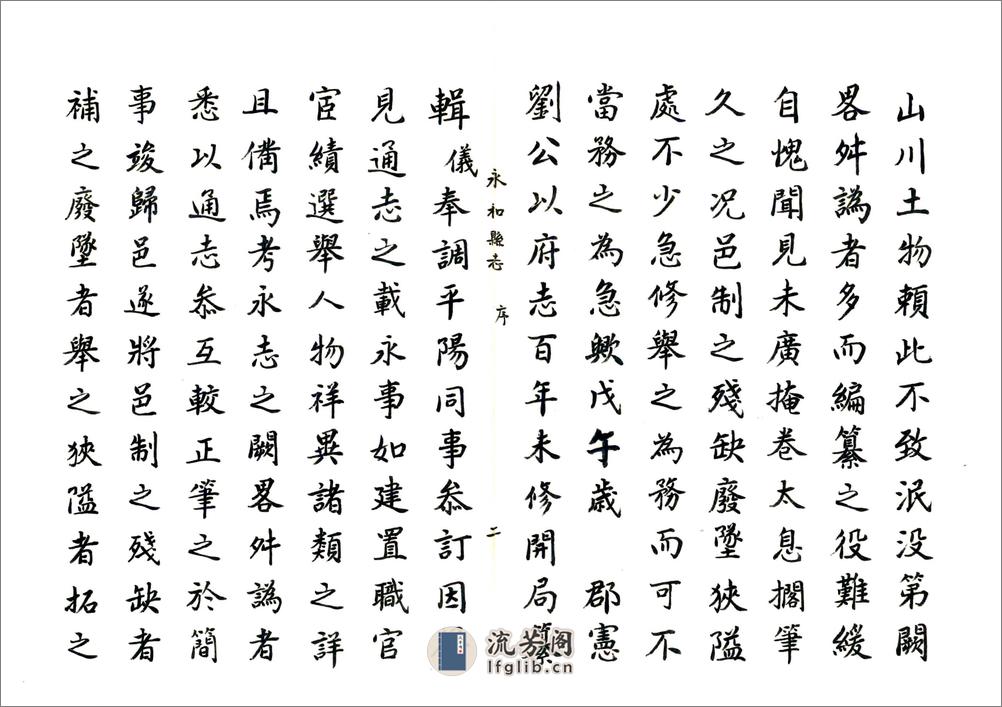 山川土物賴此不致泯没第闕
畧舛譌者多而編纂之役難緩
自愧聞見未廣掩卷太息擱筆
久之况邑制之殘缺廢墜狹隘
處不少急修舉之為務而可不
當務之為急歟戊午歲　郡憲
劉公以府志百年未修開局纂
永和縣志　序　二
輯儀奉調平陽同事叅訂因
見通志之載永事如建置職官
宦績選舉人物祥異諸類之詳
且備焉考永志之闕畧舛譌者
悉以通志叅互較正筆之於簡
事竣歸邑遂將邑制之殘缺者
補之廢墜者舉之狹隘者拓之
流芳阁
lfglib.cn